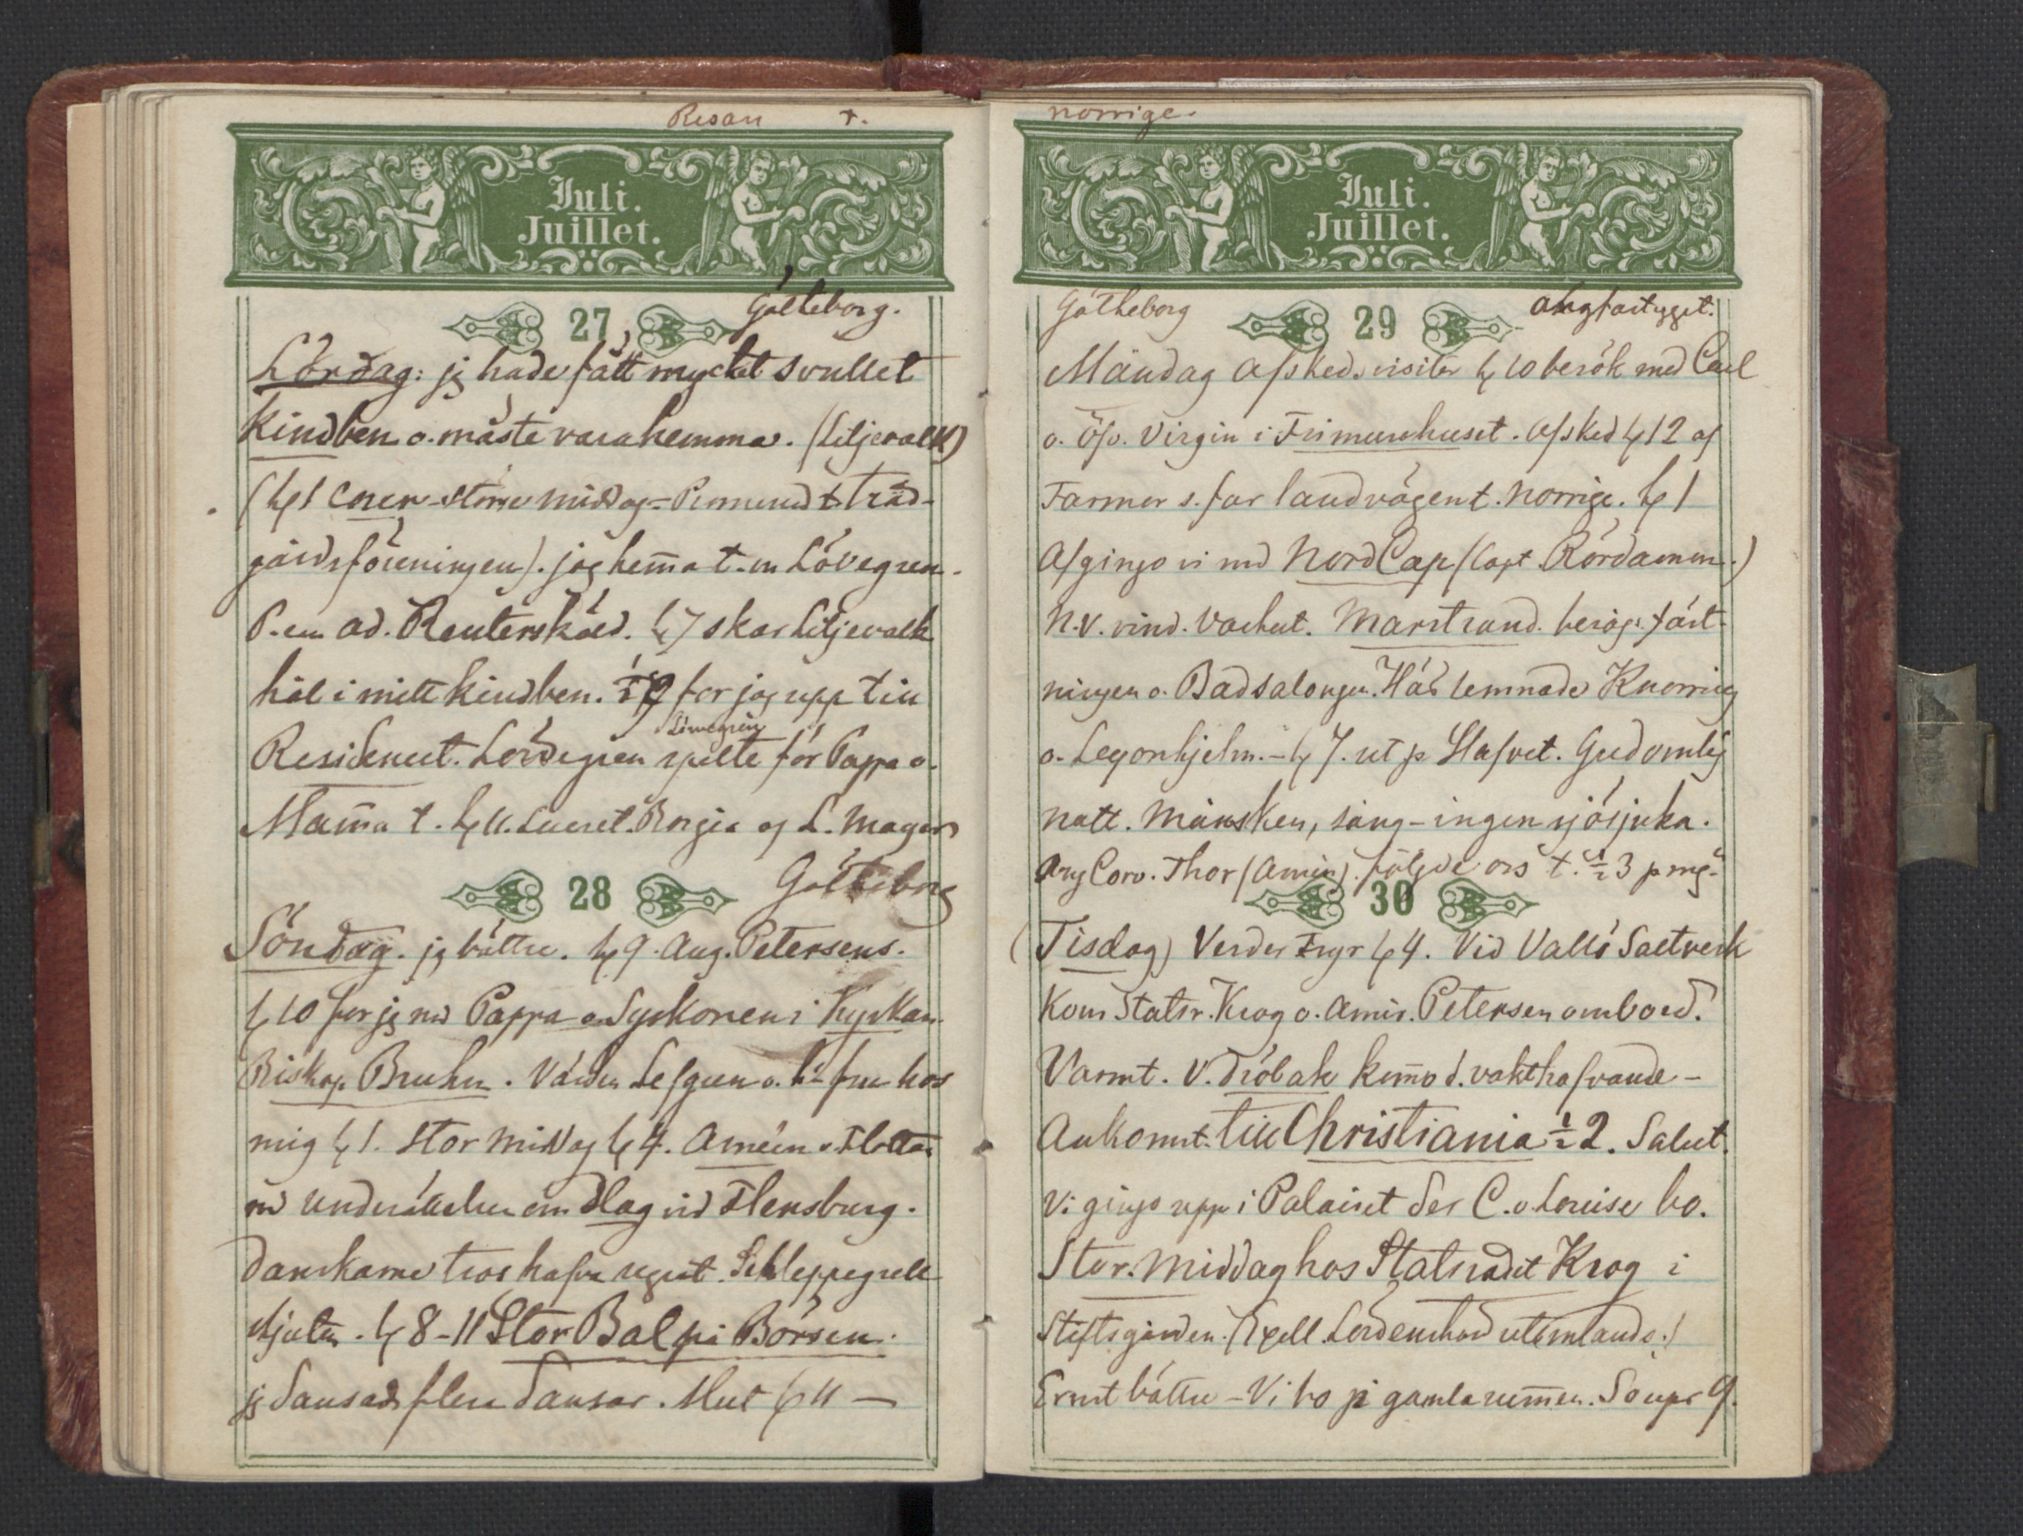 Resan t.
Juli.
Juillet.
27 Götteborg.
Lördag: jg hade fått mycket svullet
kindben o. måste vara hemma. (Liljevalk)
(kl 1 Cour - större middag - Promenad t Träd-
gårdsföreningen). jag hem̄a t. m Lövegren.
P. em ad. Reuterskjöld. kl 7 skar Liljevalk
hål i mitt kindben. ½ 9 for jag upp till
Residencet. Lövegren spelte för Pappa o.
Löwegren
Mam̄a t. kl 11. Lucret. Borgia og L. Mayer
28 Götheborg
Söndag. jg bättre. kl 9. Aug. Petersens.
kl 10 for jg md Pappa o Syskonen i Kyrkan
Biskop Bruhn. Värden Lefgren o. hs fru hos
mig kl 1. Stor middag kl 4. Améen o Flottan
md underrättelse om slag vid Flensburg.
Danskarne tros hafva segrat. Schleppegrell
skjuten. kl 8-11 Stor Bal på Börsen.
jg dansade flera dansar. Slut kl 11 —
norrige.
Juli.
Juillet.
Götheborg 29 ångfartyget.
Måndag afskedsvisiter kl 10 besök med Carl
o. Öfv. Virgin i Frimurehuset. Afsked kl 12 af
Farmor s. far landvägen t. norrige. kl 1
Afgingo vi md Nord Cap (Capt. Rördamm.)
N.V. vind. Vackert. Marstrand. besågs fäst-
ningen o. Badsalongen. Här lemnade Knorring
o. Legonhjelm. - kl 7. ut på Hafvet. Gudomlig
natt. Månsken, sång - ingen sjösjuka.
Ang Corv. Thor (Amén). följde oss t. ½ 3 p mg.
30
(Tisdag) Verder Fyr kl 4. Vid Vallö Saltverk
kom Statsr. Krog o. Amir. Petersen ombord.
Varmt. V. Dröbak kom̄o d. vakthafvande -
Ankomst till Christiania ½ 2. Salut.
Vi gingo upp i Palaiset der C. o Louise bo.
Stor. middag hos Statsrådet Krog i
Stiftsgården. (Exell. Lövenskiold utomlands.)
Ernst bättre - Vi bo på gamla rum̄en. Soupe 9.